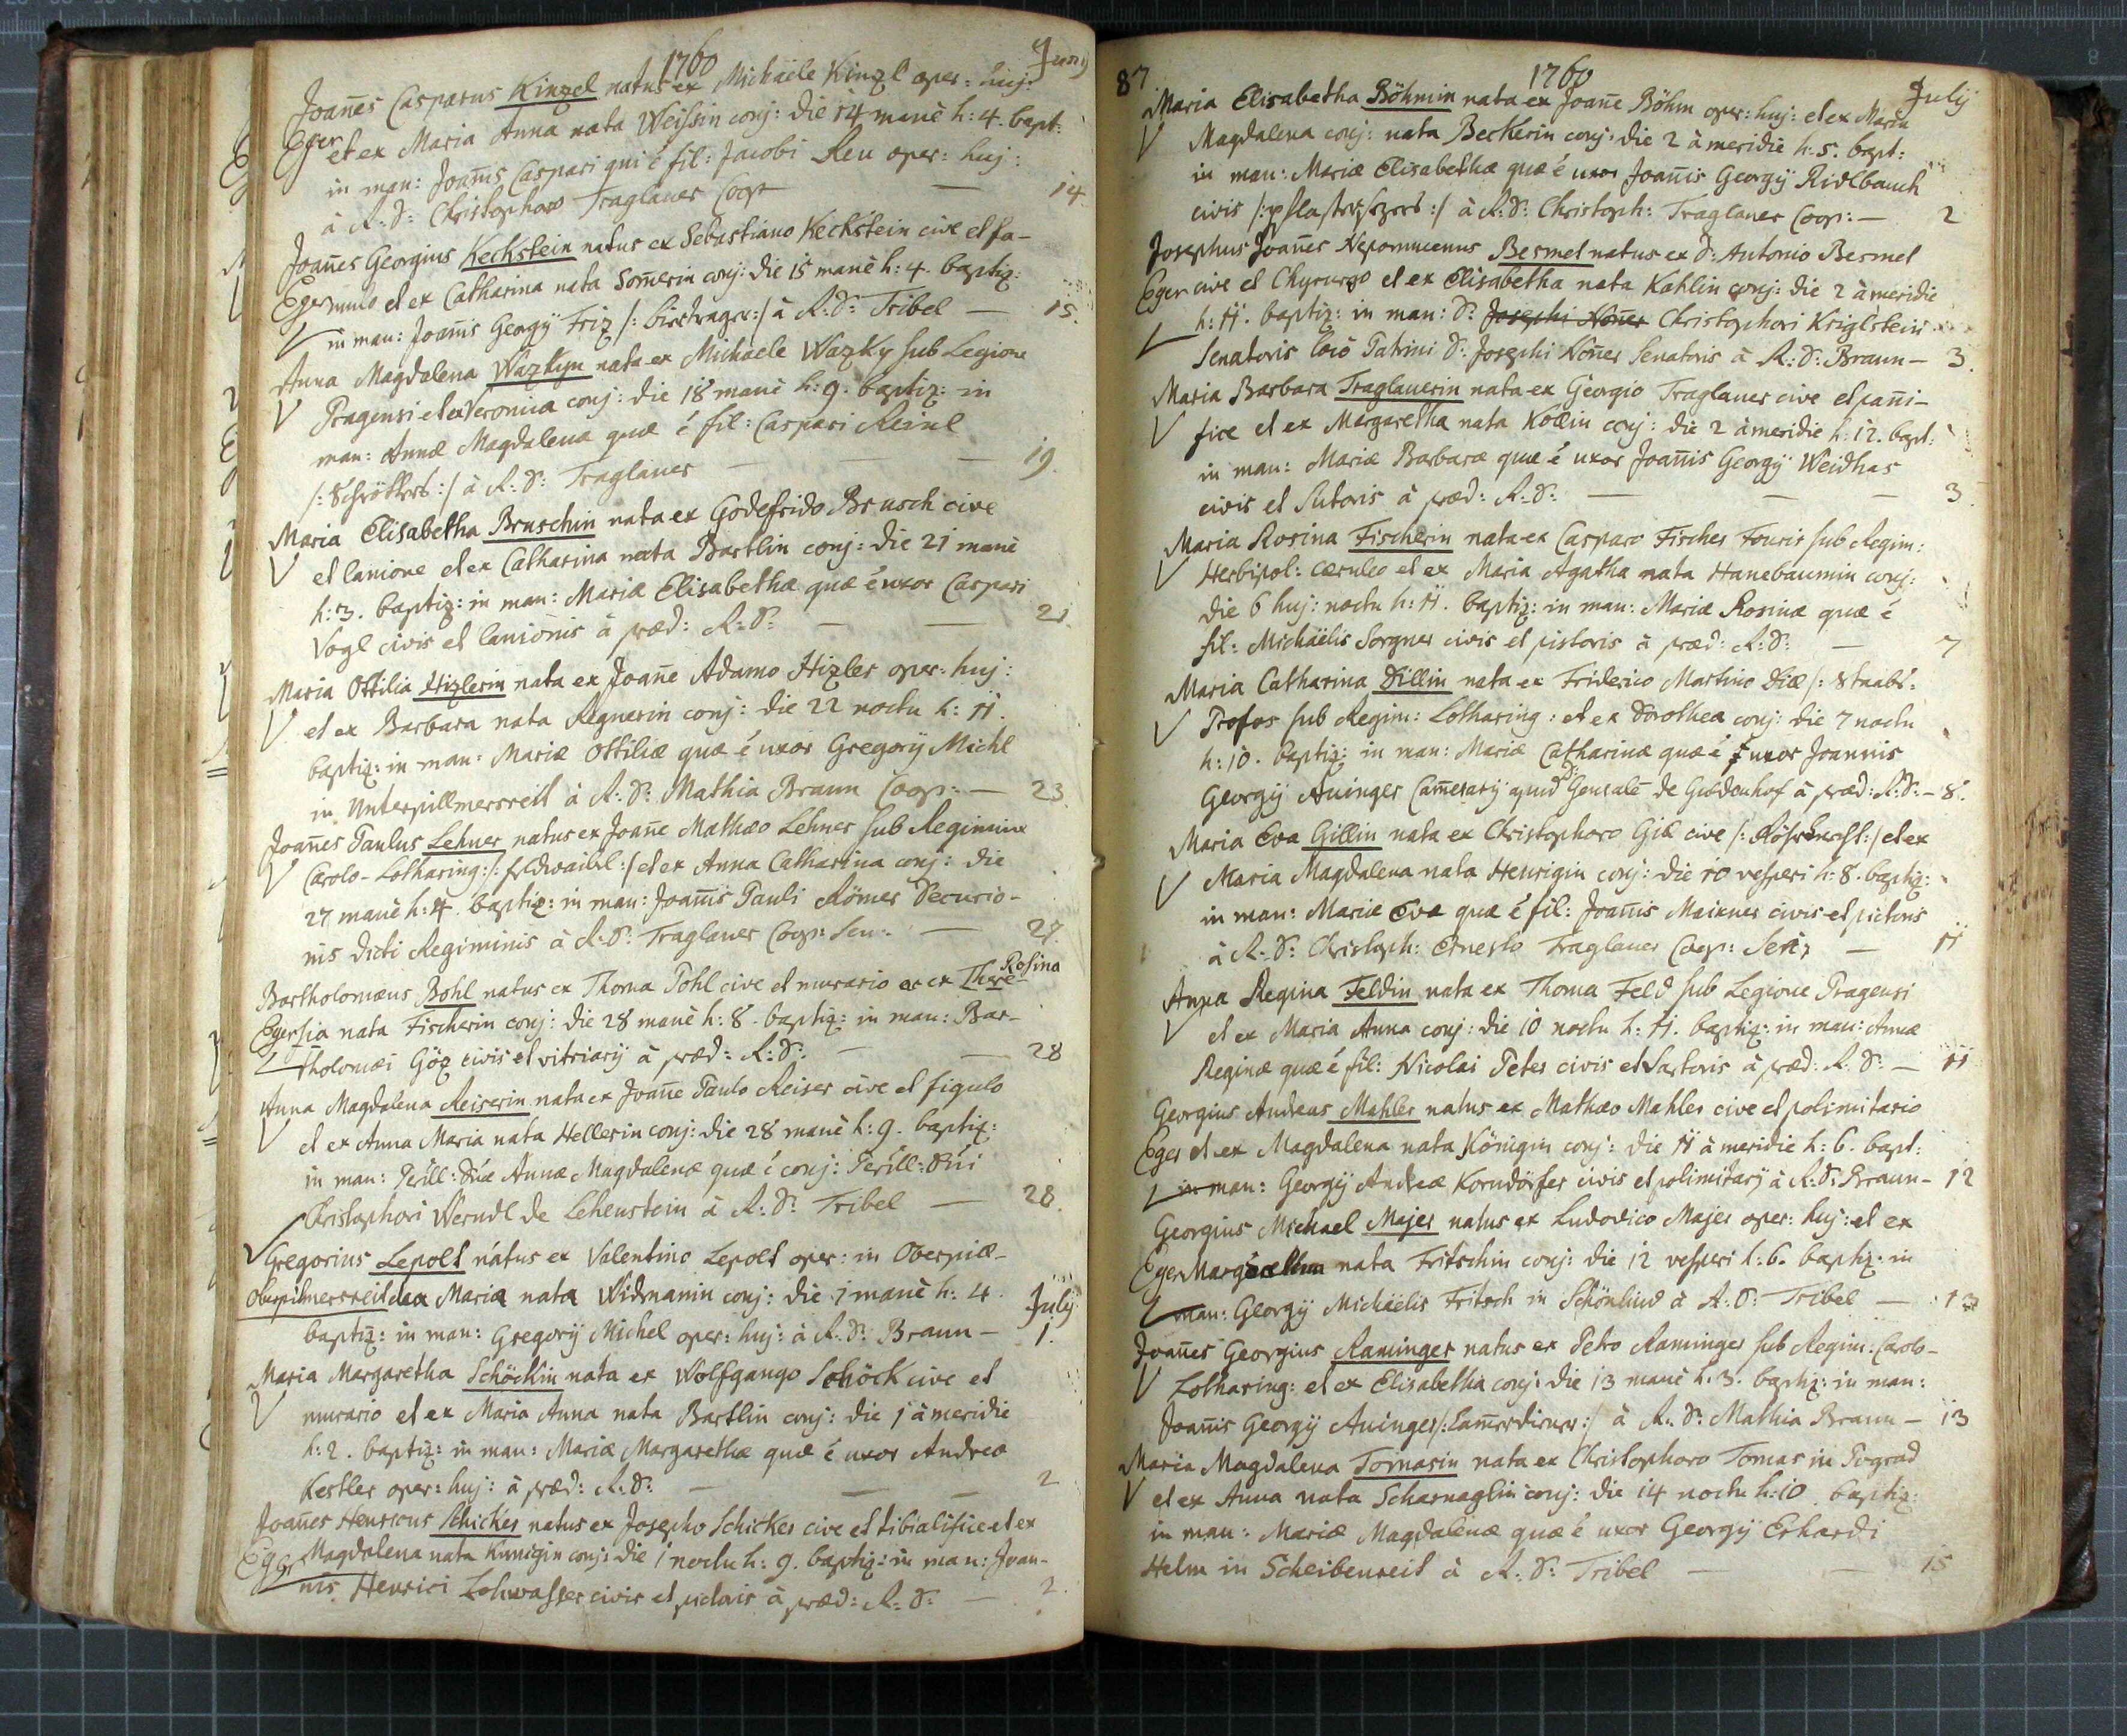 1760 Junij
Joanes Casparus Kinzel natus ex Michaële Kinzl oper: huj:
Eger et ex Maria Anna nata Weissin conj: die 14 manè h: 4. bapt:
in man: Joanis Caspari qui é fil: Jacobi Reu oper: huj:
à R: D: Christophoro Traglauer Coop — 14.
Joanes Georgius Keckstein natus ex Sebastiano Keckstein cive et fa-
Eger mulo et ex Catharina nata Somerin conj: die 15 manè h: 4. baptiz:
in man: Joanis Georgÿ Friz /: birtrager :/ à R: D: Tribel — 15.
Anna Magdalena Wazkyn nata ex Michaele Wazky sub Legione
Pragensi et ex Veronica conj: die 18 manè h: 9. baptiz: in
man: Annæ Magdalenæ quæ é fil: Caspari Reinl
/: Schrötters :/ à R: D: Traglauer — — 19.
Maria Elisabetha Bruschin nata ex Godefrido Brusch cive
et lanione et ex Catharina nata Bartlin conj: die 21 manè
h: 3. baptiz: in man: Mariæ Elisabethæ quæ é uxor Caspari
Vogl civis et lanionis à præd: R: D: — — 21.
Maria Ottilia Hizlerin nata ex Joane Adamo Hizler oper: huj:
et ex Barbara nata Regnerin conj: die 22 noctu h: 11.
baptiz: in man: Mariæ Ottiliæ quæ é uxor Gregorÿ Michl
in Unterpillmersreit à R: D: Mathia Braun Coop: — 23.
Joanes Paulus Lehner natus ex Joane Mathæo Lehner sub Regimine
Carolo-Lotharing: /: feldwaibl :/ et ex Anna Catharina conj: die
27 manè h: 4. baptiz: in man: Joanis Pauli Römer Decurio-
nis dicti Regiminis à R: D: Traglauer Coop: Sen: — 27.
Bartholomæus Bohl natus ex Thoma Pohl cive et murario ac ex There- Rosina
Eger sia nata Fischerin conj: die 28 manè h: 8. baptiz: in man: Bar-
tholomæi Göz civis et vitriarÿ à præd: R: D: — — 28
Anna Magdalena Reiserin nata ex Joane Paulo Reiser cive et figulo
et ex Anna Maria nata Hellerin conj: die 28 manè h: 9. baptiz:
in man: Perill: Dnæ Annæ Magdalenæ quæ é conj: Perill: Dni
Christophori Werndl de Lehenstein à R: D: Tribel — 28.
Gregorius Lepolt natus ex Valentino Lepolt oper: in Oberpil-
Oberpilmersreit Maria nata Widmanin conj: die 1 manè h: 4. Julÿ
baptiz: in man: Gregorÿ Michel oper: huj: à R: D: Braun — 1.
Maria Margaretha Schöckin nata ex Wolfgango Schöck cive et
murario et ex Maria Anna nata Bartlin conj: die 1 à meridie
h: 2. baptiz: in man: Mariæ Margarethæ quæ é uxor Andreæ
Kestler oper: huj: à præd: R: D: — — — 2
Joanes Henricus Schicker natus ex Josepho Schicker cive et tibialifice et ex
Eger Magdalena nata Kunigin conj: die 1 noctu h: 9. baptiz: in man: Joan-
nis Henrici Lohwasser civis et pictoris à præd: R: D: — 2.
87. 1760 Julÿ
Maria Elisabetha Böhmin nata ex Joane Böhm oper: huj: et ex Maria
Magdalena conj: nata Beckerin conj: die 2 à meridie h: 5. bapt:
in man: Mariæ Elisabethæ quæ é uxor Joanis Georgÿ Ridlbauch
civis à R: D: Christoph: Traglauer Coop: — 2
Josephus Joanes Nepomucenus Besmel natus ex D: Antonio Besmel
Eger cive et Chyrurgo et ex Elisabetha nata Kahlin conj: die 2 à meridie
h: 11. baptiz: in man: D: Josephi Noner Christophori Kriglstein
Senatoris loco Patrini D: Josephi Noner Senatoris à R: D: Braun — 3.
Maria Barbara Traglauerin nata ex Georgio Traglauer cive et pani-
fice et ex Margaretha nata Kollin conj: die 2 à meridie h: 12. bapt:
in man: Mariæ Barbaræ quæ é uxor Joanis Georgÿ Weidhas
civis et sutoris à præd: R: D: — — — 3.
Maria Rosina Fischerin nata ex Casparo Fischer Fourir sub Regim:
Herbipol: cæruleo et ex Maria Agatha nata Hanebaumin conj:
die 6 huj: noctu h: 11. baptiz: in man: Mariæ Rosinæ quæ é
fil: Michaëlis Sorgner civis et pistoris à præd: R: D: — 7
Maria Catharina Dillin nata ex Friderico Martino Dill /: Staabs:
Profos sub Regim: Lotharing: et ex Dorothea conj: die 7 noctu
h: 10. baptiz: in man: Mariæ Catharinæ quæ é uxor Joannis
Georgÿ Auinger Camerarÿ apud D: Genealē de Guldenhof à præd: R: D: — 8.
Maria Eva Gillin nata ex Christophoro Gill cive et ex
Maria Magdalena nata Henrigin conj: die 10 vesperi h: 8. baptiz:
in man: Mariæ Evæ quæ é fil: Joanis Maixner civis et pictoris
à R: D: Christoph: Ernesto Traglauer Coop: Sen: — 11
Anna Regina Feldin nata ex Thoma Feld sub Legione Pragensi
et ex Maria Anna conj: die 10 noctu h: 11. baptiz: in man: Annæ
Reginæ quæ é fil: Nicolai Peter civis et Sartoris à præd: R: D: — 11
Georgius Andreas Mahler natus ex Mathæo Mahler cive et polimitario
Eger et ex Magdalena nata Königin conj: die 11 à meridie h: 6. bapt:
in man: Georgÿ Andreæ Korndörfer civis et polimitarÿ à R: D: Braun — 12
Georgius Michael Majer natus ex Ludovico Majer oper: huj: et ex
Eger Margaretha nata Fritschin conj: die 12 vesperi h: 6. baptiz: in
man: Georgÿ Michaëlis Fritsch in Schönlind à R: D: Tribel — 13
Joanes Georgius Raminger natus ex Petro Raminger sub Regim: Carolo-
Lotharing: et ex Elisabetha conj: die 13 manè h: 3. baptiz: in man:
Joanis Georgÿ Auinger /: Camerdiener :/ à R: D: Mathia Braun — 13
Maria Magdalena Tomasin nata ex Christophoro Tomas in Pograd
et ex Anna nata Scharnaglin conj: die 14 noctu h: 10 baptiz:
in man: Mariæ Magdalenæ quæ é uxor Georgÿ Erhardi
Helm in Scheibenreit à R: D: Tribel — — 15